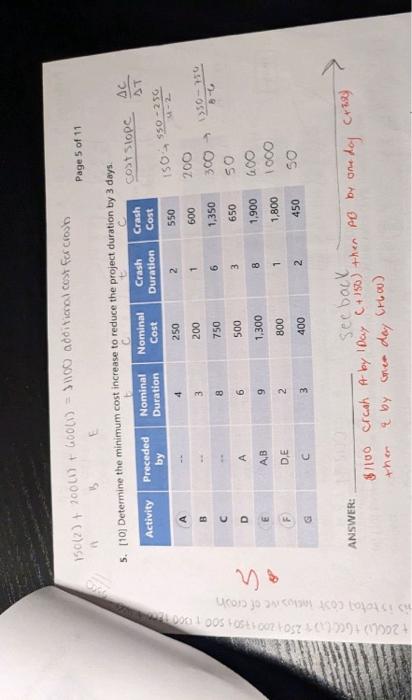 150(2) + 200(1) + 600(1) = $1100 additional cost for crash
A B E
Page 5 of 11
5. [10] Determine the minimum cost increase to reduce the project duration by 3 days.
t C t C
cost slope ΔC/ΔT
Activity Preceded by Nominal Duration Nominal Cost Crash Duration Crash Cost
A -- 4 250 2 550 150 → 550-250/4-2
B -- 3 200 1 600 200
C -- 8 750 6 1,350 300 → 1350-750/8-6
D A 6 500 3 650 50
E A,B 9 1,300 8 1,900 600
F D,E 2 800 1 1,800 1000
G C 3 400 2 450 50
ANSWER: see back
$1100 crash A by 1 Day (+150) then AB by one day
then E by one day (+600)
is total cost inclusive of crash